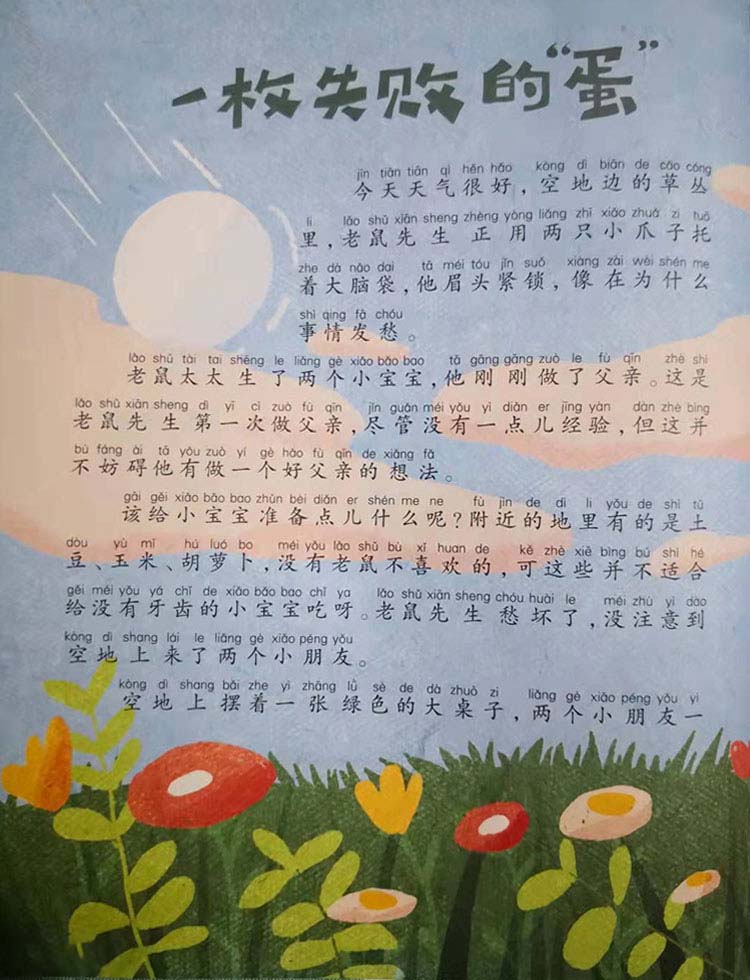 一枚失败的“蛋”
jīn tiān tiān qì hěn hǎo kòng dì biān de cǎo cóng
今天天气很好，空地边的草丛
li lǎo shǔ xiān sheng zhèng yòng liǎng zhī xiǎo zhuǎ zi tuō
里，老鼠先生正用两只小爪子托
zhe dà nǎo dai tā méi tóu jǐn suǒ xiàng zài wèi shén me
着大脑袋，他眉头紧锁，像在为什么
shì qing fā chóu
事情发愁。
lǎo shǔ tài tai shēng le liǎng gè xiǎo bǎo bao tā gāng gāng zuò le fù qīn zhè shì
老鼠太太生了两个小宝宝，他刚刚做了父亲。这是
lǎo shǔ xiān sheng dì yī cì zuò fù qīn jǐn guǎn méi yǒu yì diǎn er jīng yàn dàn zhè bìng
老鼠先生第一次做父亲，尽管没有一点儿经验，但这并
bù fáng ài tā yǒu zuò yí gè hǎo fù qīn de xiǎng fǎ
不妨碍他有做一个好父亲的想法。
gāi gěi xiǎo bǎo bao zhǔn bèi diǎn er shén me ne fù jìn de dì li yǒu de shì tǔ
该给小宝宝准备点儿什么呢？附近的地里有的是土
dòu yù mǐ hú luó bo méi yǒu lǎo shǔ bù xǐ huan de kě zhè xiē bìng bú shì hé
豆、玉米、胡萝卜，没有老鼠不喜欢的，可这些并不适合
gěi méi yǒu yá chǐ de xiǎo bǎo bao chī ya lǎo shǔ xiān sheng chóu huài le méi zhù yì dào
给没有牙齿的小宝宝吃呀。老鼠先生愁坏了，没注意到
kòng dì shang lái le liǎng gè xiǎo péng yǒu
空地上来了两个小朋友。
kòng dì shang bǎi zhe yì zhāng lǜ sè de dà zhuō zi liǎng gè xiǎo péng yǒu yì
空地上摆着一张绿色的大桌子，两个小朋友一